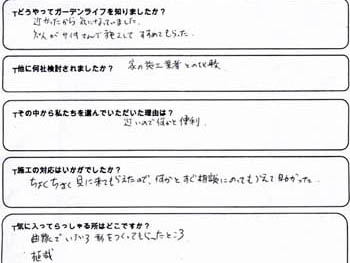 ▼どうやってガーデンライフを知りましたか？
近かったから 気になっていました。
知人が すすめてもらった。
▼他に何社検討されましたか？ 家の施工業者との比較
▼その中から私たちを選んでいただいた理由は？
近いので何かと便利
▼施工の対応はいかがでしたか？
ちょくちょく見に来てもらえたので、何かとすぐ相談にのってもらえて助かった。
▼気に入ってらっしゃる所はどこですか？
曲線で いろいろ 形をつくってもらったところ
植栽